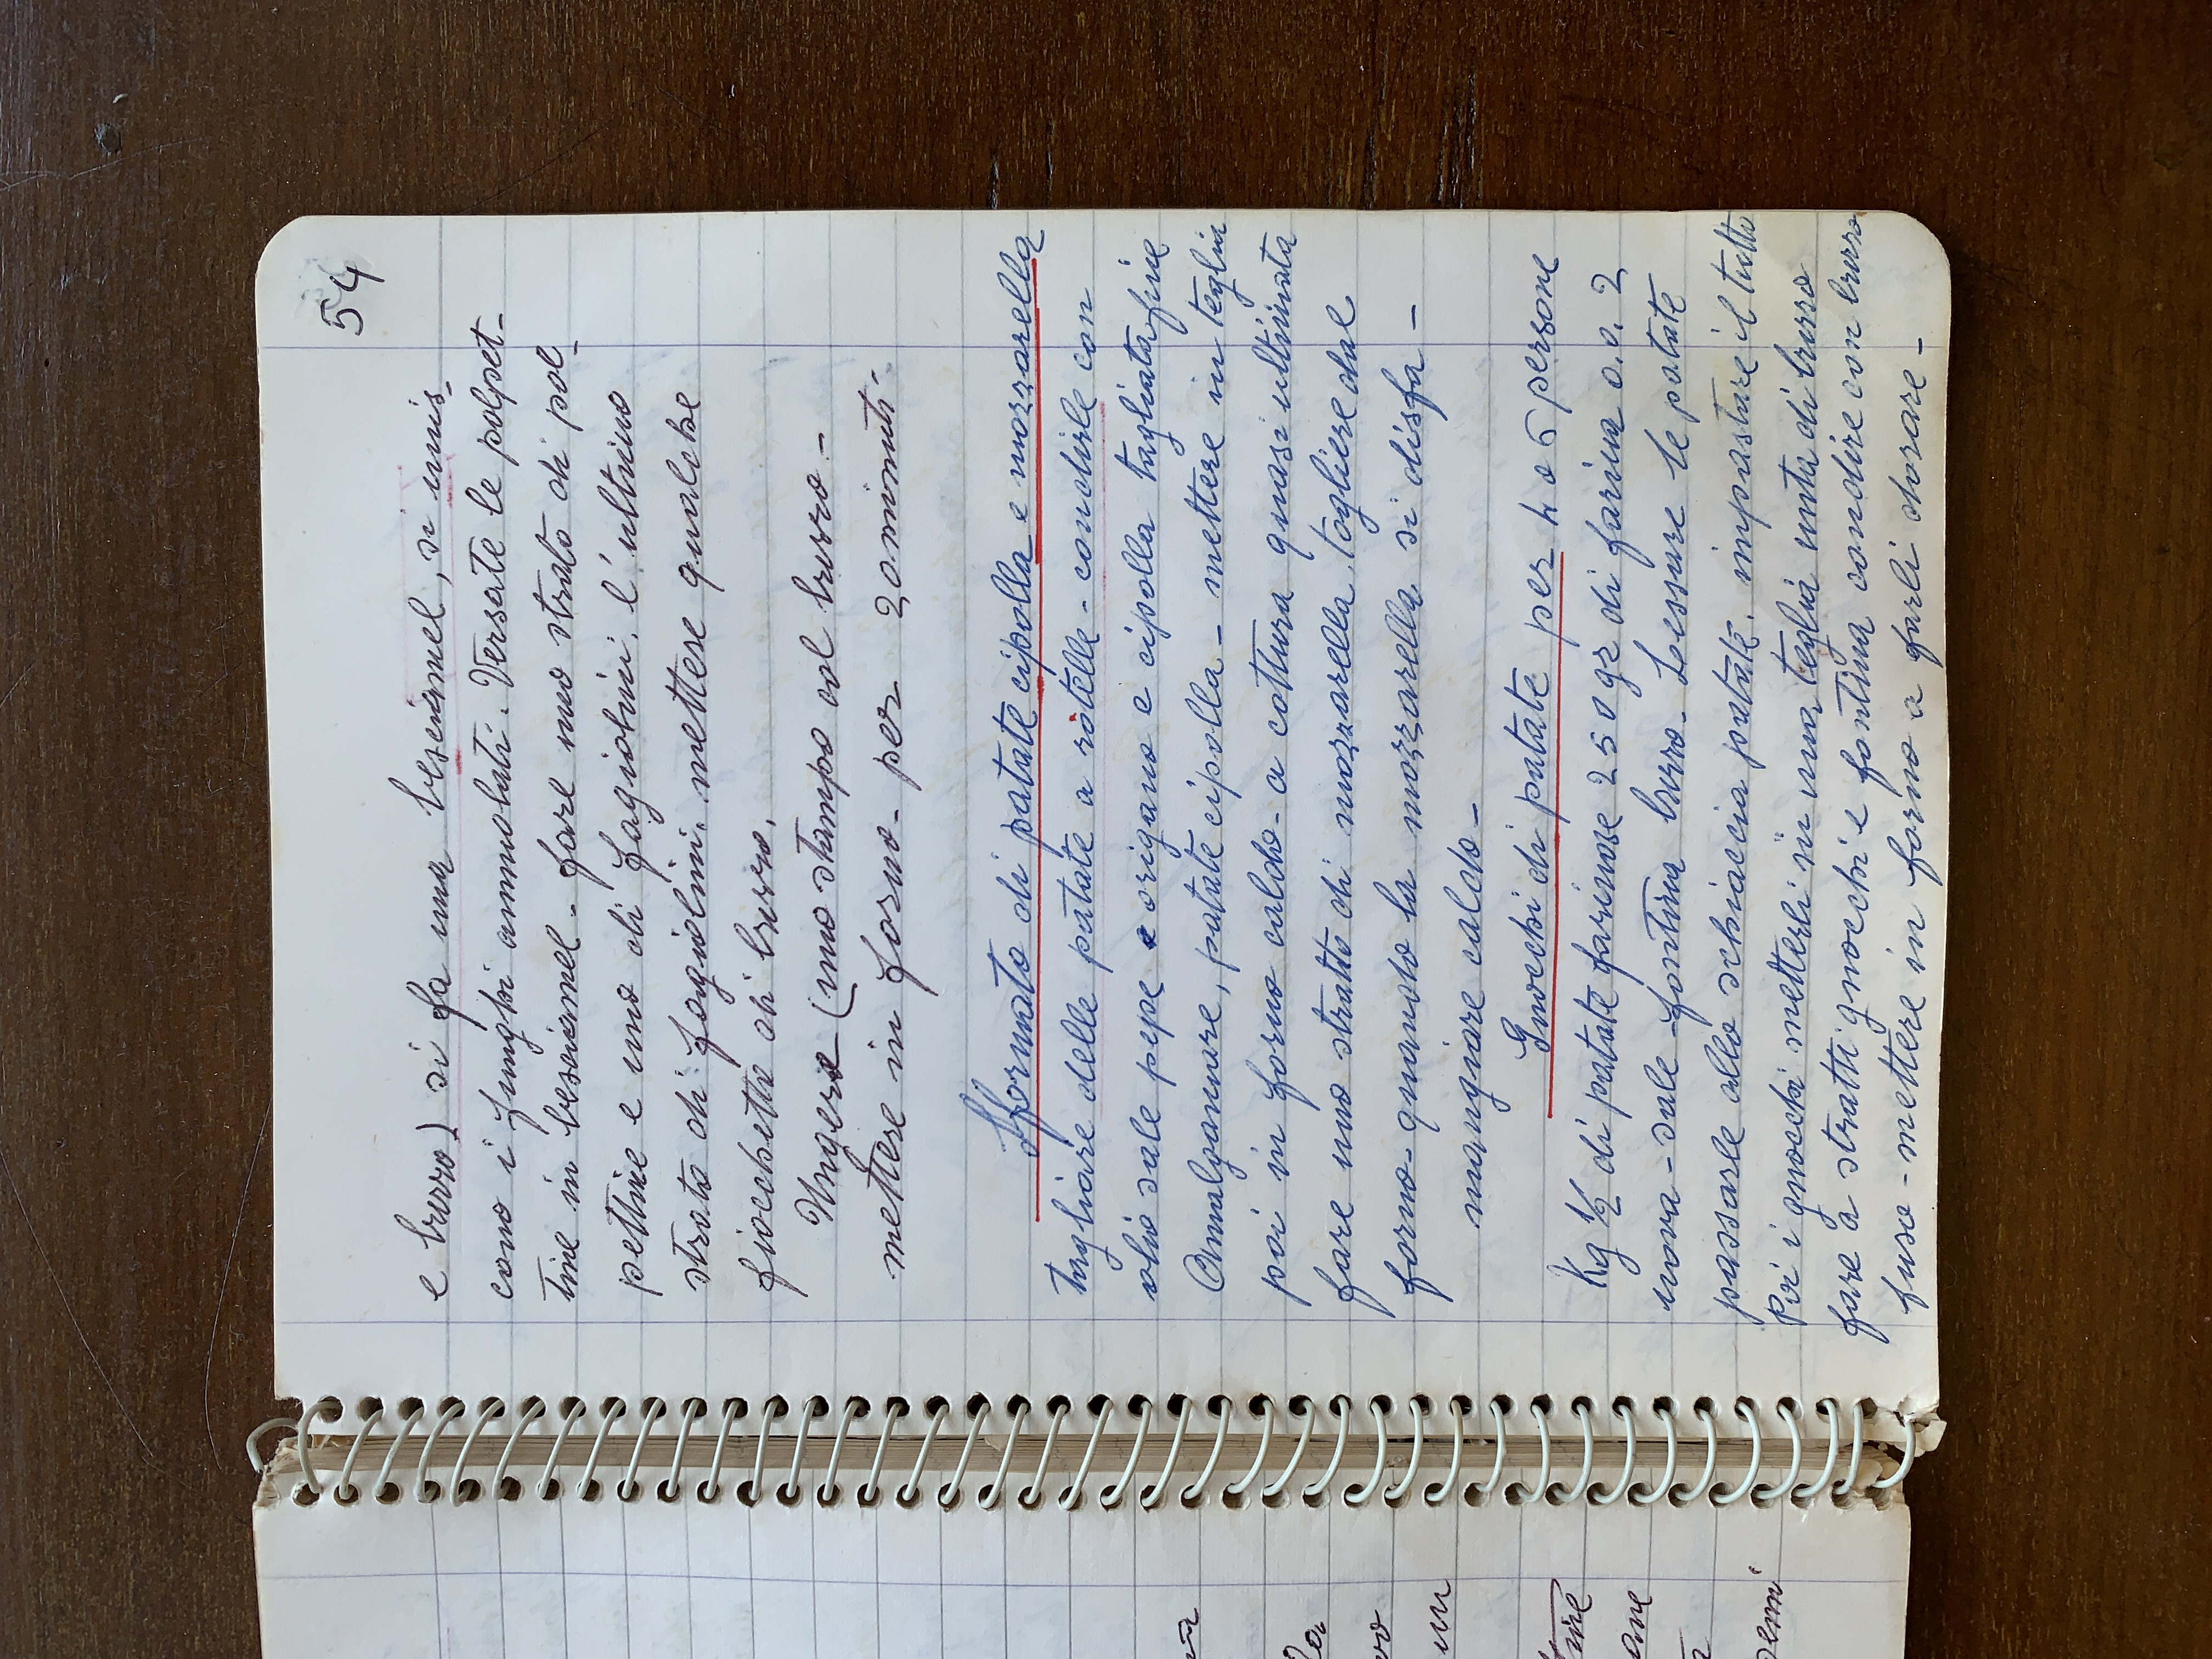 54
e burro) si fa una besciamel, si unis-
cono i funghi ammolati. Versate le polpet-
tine in besciamel - fare uno strato di pol-
pettine e uno di fagiolini. l'ultimo
strato di fagiolini. mettere qualche
fiocchetto di burro.
Ungere (uno stampo col burro -
mettere in forno - per 20 minuti
Sformato di patate cipolla e mozzarella
tagliare delle patate a rotelle - condirle con
olio sale pepe e origano e cipolla tagliata fine
Amalgamare, patate cipolla - mettere in teglia
poi in forno caldo - a cottura quasi ultimata
fare uno stratto di mozzarella. togliere dal
forno - quando la mozzarella si disfa -
mangiare caldo -
Gnocchi di patate per 4 o 6 persone
Kg 1/2 di patate farinose 250 gr di farina o.o. 2
uova - sale - fontina burro. Lessare le patate
passarle allo schiaccia patate. impastare il tutto
Poi i gnocchi metterli in una teglia unta di burro
fare a stratti gnocchi e fontina condire con burro
fuso - mettere in forno a farli dorare -
un